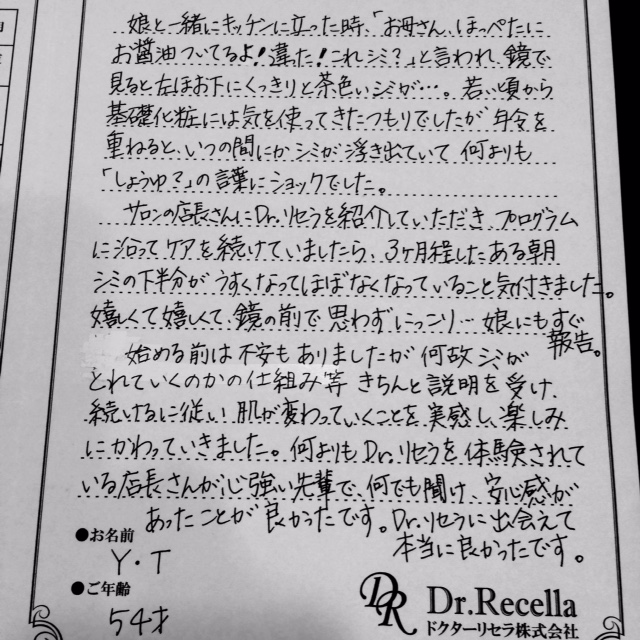 娘と一緒にキッチンに立った時、「お母さん、ほっぺたに
お醤油ついてるよ!違た!これシミ?」と言われ、鏡で
見ると左ほお下にくっきりと茶色いシミが…。若い頃から
基礎化粧には気を使ってきたつもりでしたが年令を
重ねると、いつの間にかシミが浮き出ていて何よりも
「しょうゆ?」の言葉にショックでした。
サロンの店長さんにDr.リセラを紹介していただき、プログラム
に沿ってケアを続けていましたら、3ヶ月程したある朝
シミの下半分がうすくなってほぼなくなっていること気付きました。
嬉しくて嬉しくて、鏡の前で思わずにっこり…娘にもすぐ
報告。
始める前は不安もありましたが何故シミが
とれていくのかの仕組み等きちんと説明を受け、
続けるに従い肌が変わっていくことを実感し、楽しみ
にかわっていきました。何よりもDr.リセラを体験されて
いる店長さんが心強い先輩で、何でも聞け、安心感が
あったことが良かったです。Dr.リセラに出会えて
本当に良かったです。
●お名前
Y・T
●ご年齢
54才
DR Dr.Recella
ドクターリセラ株式会社